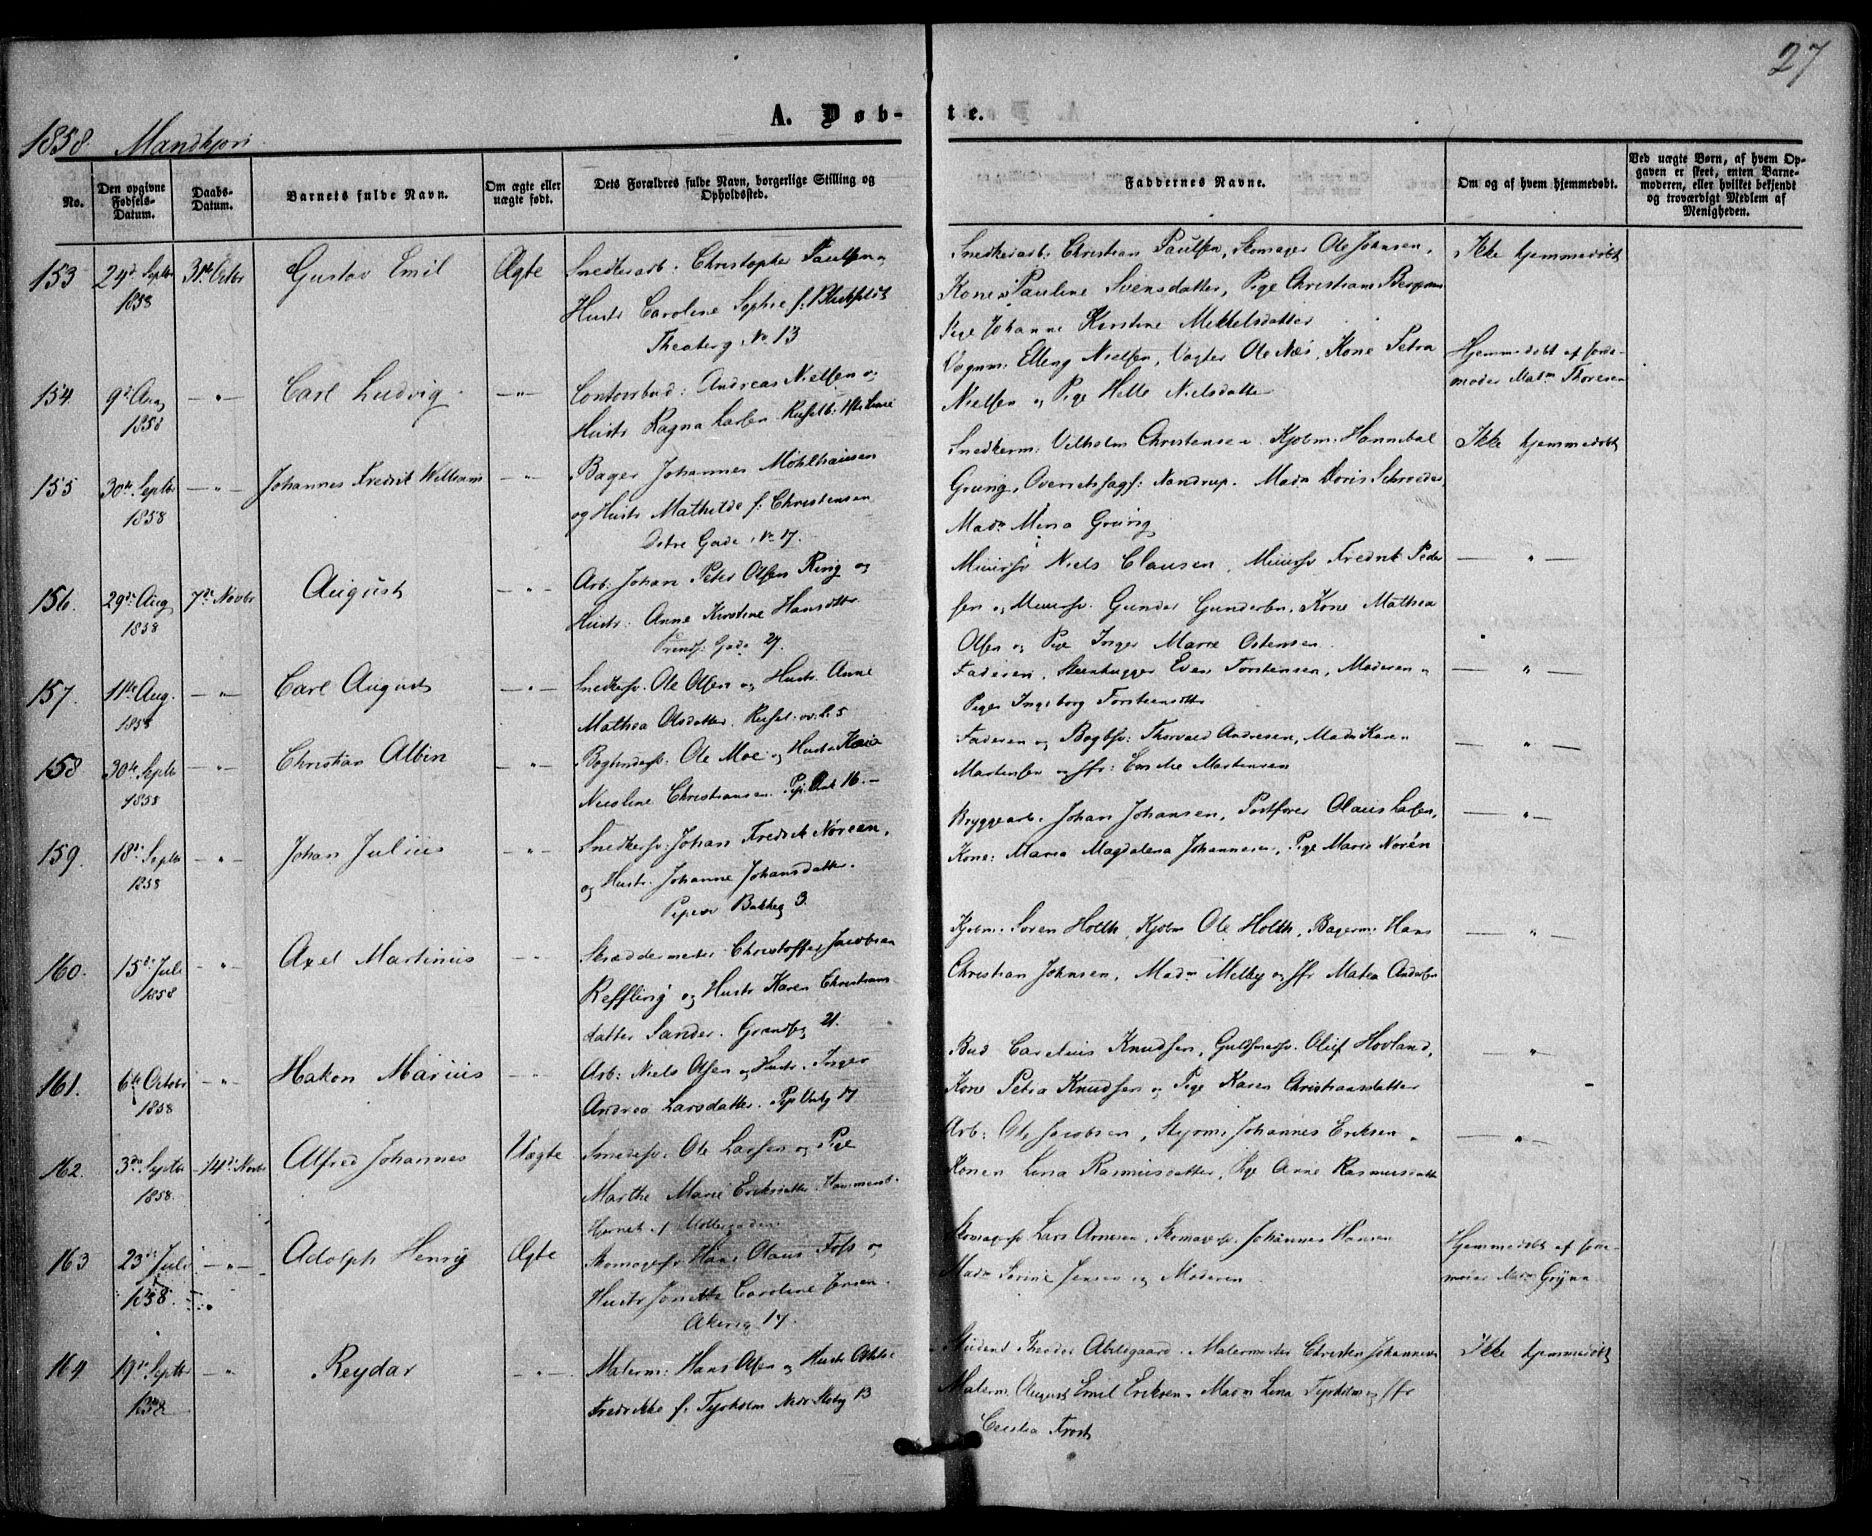 27
A. Døb-te.
1858. Mandkjøn
No.
Den opgivne Fødsels-Datum.
Daabs-Datum.
Barnets fulde Navn.
Om ægte eller uægte født.
Dets Forældres fulde Navn, borgerlige Stilling og Opholdssted.
Faddernes Navne.
Om og af hvem hjemmedøbt.
Ved uægte Børn, af hvem Opgaven er skeet, enten Barnemoderen, eller hvilket bekjendt og troværdigt Medlem af Menigheden.
153 29de Septbr 1858 31te Octbr Gustav Emil Ægte
Snedkerarb: Christopher Paulsen og
Hustr Caroline Sophie f:
Theaterg. No 13
Snedkerarb: Christian Paulsen, Skomager Ole Johansen,
Kone Pauline Svensdatter, Pige Christiane
Pige Johanne Kirstine Mekkelsdatter
Ikke hjemmedøbt
154. 9de Aug 1858 -"- Carl Ludvig -"-
Contoirbud: Andreas Nielsen og
Hustr Ragna Larsen
Vognm: Elling Nielsen, Vægter Ole Næs, Kone Petra
Nielsen og Pige Helle Nielsdatter
Hjemmedøbt af Jorde-
moder Madm Thoresen
155 30te Septbr 1858 -"- Johannes Fredrik William -"-
Bager Johannes Möhlhausen
og Hustr Mathilde f: Christensen
Østre Gade No 17.
Snedkerm: Vilhelm Christensen, Kjøbm: Hannibal
Grüng, Overretssagf: Nandrup. Madm Doris Schroeder
Madm Mina Grüng
Ikke hjemmedøbt
156. 29de Aug 1858 7de Novbr August -"-
Arb. Johan Peter Olsen Ring og
Hustr: Anne Kirstine Hansdtter
Prinds: Gade 27.
Muursv Niels Clausen, Muursv Fredrik Peder
sen og Muursv. Gunder Gundersen, Kone Mathea
Olsen og Pige Inger Marie Ostensen
-"-
157. 11te Aug. 1858 -"- Carl August -"-
Snedkersv. Ole Olsen og Hustr. Anne
Mathea Olsdatter.
Faderen, Steenhugger Even Torstensen, Moderen og
Pige Ingeborg Torstensdtter
-"-
158 30te Septbr 1858 -"- Christian Albin -"-
Bogbindersv: Ole Moe og Hustr Karen
Nicoline Christiansen. 16.
Faderen og Bogbsv: Thorvald Andresen, Madm Karen
Martinsen og Jfr: Martensen
-"-
159. 18de Septbr 1858 -"- Johan Julius -"-
Snedkersv: Johan Fredrik Noreen,
og Hustr. Johanne Johansdatter.
Pipervi Bakkeg 3.
Bryggearb. Johan Johansen, Postfører Olaus Larsen,
Kone: Maria Magdalena Johannesen, Pige Marie Norén
-"-
160. 15de Juli 1858 -"- Axel Martinus -"-
Skræddermester Christoffer Jacobsen
Reffling og Hustr Karen Christians-
datter Sander. Grændseg 21.
Kjøbm: Søren Holth, Kjøbm Ole Holth, Bagerm: Hans
Christian Johnsen, Madm Melby og Jfr Matea Andersen
-"-
161. 6te Octobr 1858 -"- Hakon Marius -"-
Arb: Niels Olsen og Hustr. Inger
Andrea Larsdatter. 17
Bud Carelius Knudsen, Guldsmedsv. Oluf Hovland,
Kone Petra Knudsen og Pige Karen Christiansdatter
-"-
162. 3die Septbr 1858. 14de Novbr Alfred Johannes Uægte
Smedesv. Ole Larsen og Pige
Marthe Marie Eriksdatter Hammersb.
Hjørnet af Møllergaden
Arb: Ole Jacobsen, Styrm: Johannes Eriksen,
Konen Lena Rasmusdatter, Pige Anne Rasmusdatter
-"-
163 23de Juli 1858. -"- Adolph Henrij Ægte
Skomagersv Hans Olaus Foss og
Hustr Jonette Caroline Jensen.
Akersg 17.
Skomagersv Lars Arnesen, Skomagersv. Johannes Hansen
Madm Sorine Jensen og Moderen
Hjemmedøbt af Jorde-
moder Madm
164 19de Septbr 1858 -"- Reydar -"-
Malerm: Hans Olsen og Hustr
Fredrikke f. Tyrholm 13
Student Theodor Abildgaard, Malermester Christen Johannesen
Malerm. August Emil Eriksen, Madm Lina Tyrholm og Jfr
Cecilia Frost
Ikke hjemmedøbt